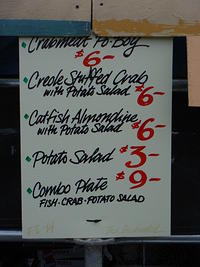 Crabmeat Po-Boy
$6-
Creole Stuffed Crab
with Potato Salad $6-
Catfish Almondine
with Potato Salad $6-
Potato Salad $3-
Combo Plate $9-
FISH·CRAB·POTATO SALAD